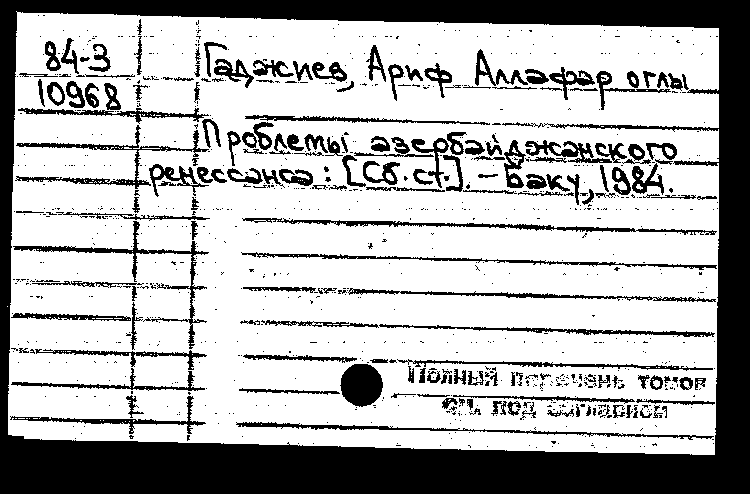 84-3
10968
Гаджиев, Ариф Аллафар оглы
Проблемы азербайджанского
ренессанса: [Сб. ст.]. – Баку, 1984.
Полный перечень томов
см. под заглавием